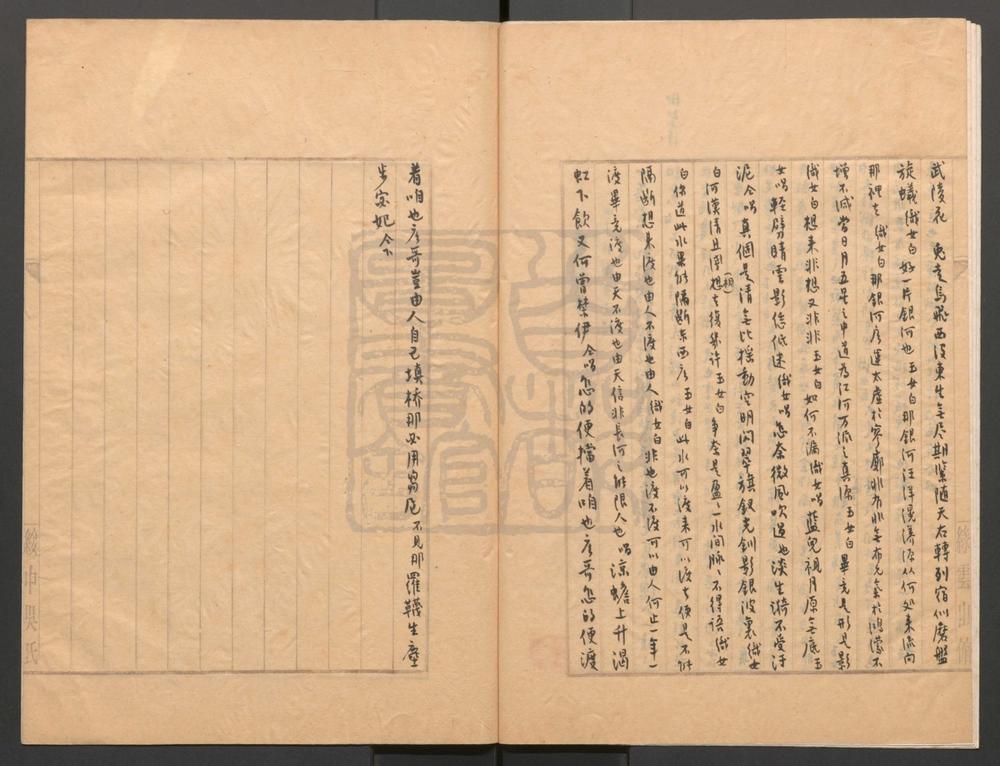 武陵花　兔走烏飛西没東生無尽期緊随天右轉列宿似磨盤
旋蟻織女白好一片銀河也玉女白那銀河汪洋滉漾源从何処来流向
那裡去織女白那銀河廣運太虚於寥廓非有非無布元氣於鴻濛不
增不減當日月五星之中道为江河万派之真源玉女白畢竟是形是影
織女白想来非想又非非玉女白如何不漏織女唱藍兒視月原無底玉
女唱輕劈晴雲影恁低迷織女唱怎奈微風吹過也淡生漪不受汙
泥仝唱真個是清無比搖動空明闪翠旗釵光釧影銀波裏織女
白河漢清且淺相去復幾许玉女白争奈是盈〻一水间脉〻不得語織女
白你道此水果能隔断东西麽玉女白此水可以渡来可以渡去便是不能
隔断想来渡也由人不渡也由人織女白非也渡不渡可以由人何止一年一
渡畢竟渡也由天不渡也由天信非長河之能限人也唱凉蟾上升渴
虹下飲又何曾禁伊仝唱怎的便擋着咱也麽哥怎的便渡
着咱也麽哥豈由人自己填桥那必用舄凫不見那羅韈生塵
步宓妃仝下